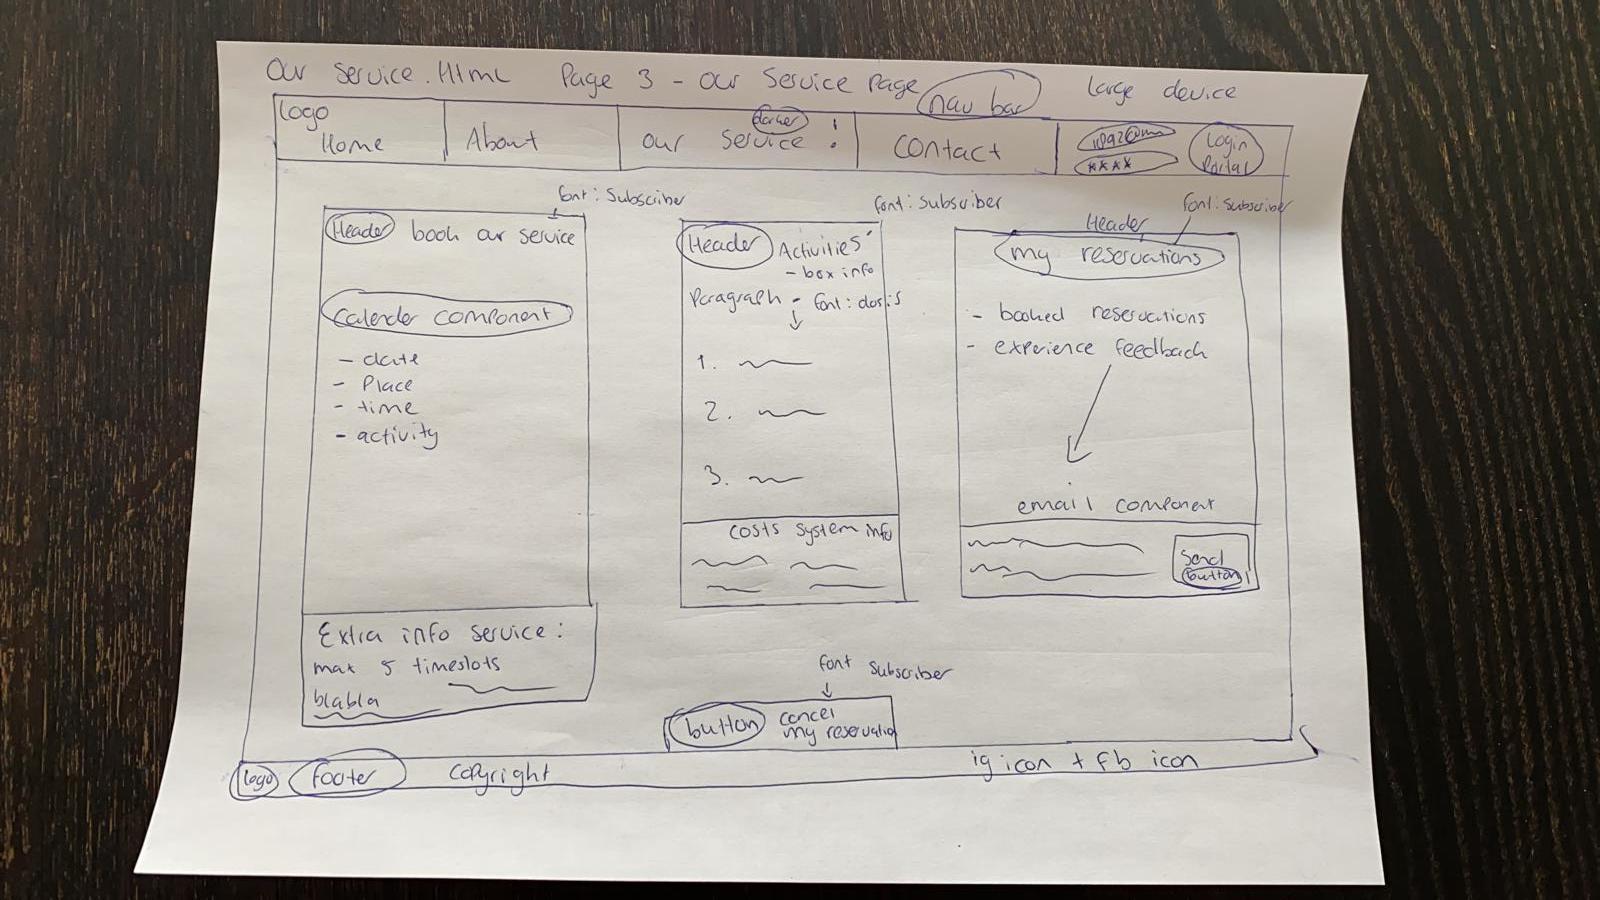 Our Service.Html Page 3 - Our Service Page nav bar Large device
logo
Home
About
our Service :
darker
Contact
****
Login
Portal
font: Subscriber
Header book our service
Calender component
- date
- Place
- time
- activity
Extra info service:
max 5 timeslots
blabla
font: Subscriber
Header Activities
- box info
Paragraph - font: dosis
1.
2.
3.
Costs system info
font: Subscriber
Header
my reservations
- booked reservations
- experience feedback
email component
Send
button
font Subscriber
button cancel
my reservatio
logo footer Copyright ig icon + fb icon